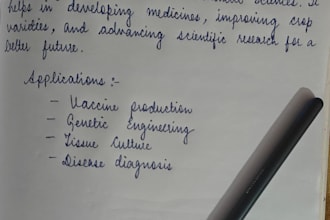 helps in developing medicines, improving crop
varieties, and advancing scientific research for a
better future.
Applications :-
- Vaccine production
- Genetic Engineering
- Tissue Culture
- Disease diagnosis